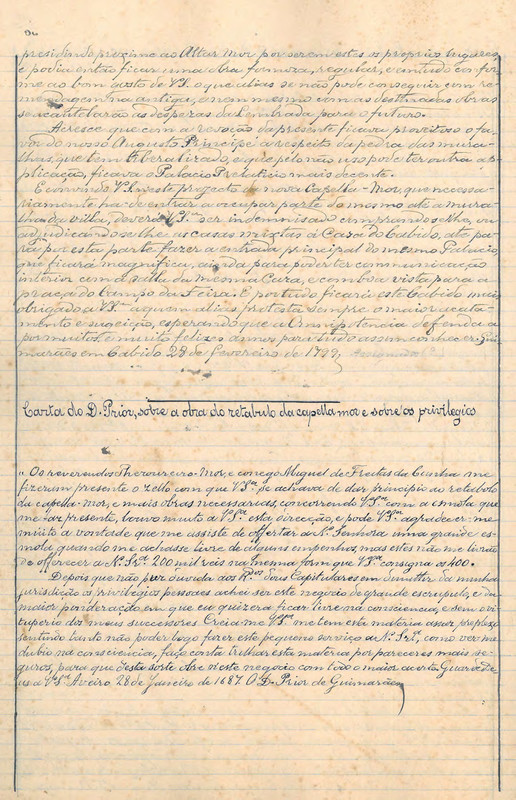 presidindo proximo ao Altar Mor por serem estes os proprios lugares
e podia então ficar uma obra formoza, regular, e em tudo confor
me ao bom gosto de V.S. o que alias se não pode conseguir com re
mendagem na antiga, a nem mesmo com as destinadas obras
se encantarão as despezas da Entrada para o futuro.
Acresce que com a revoção da presente ficava proveitoso o fa-
vor do nosso Augusto Principe a respeito da pedra das mura-
lhas, que tem liberalizado, e que pelo não uso pode ter outra a-
plicação, ficava o Palacio Prelaticio mais decente.
E convindo V.S. neste projecto da nova Capella-Mor, que necessa-
riamente ha-de entrar a occupar parte do mesmo até a mura-
lha da villa, deverá V.S. ser indemnisado comprando-se-lhe, ou
adjudicando-se-lhe as casas mixtas á Casa do Cabido, até pa-
ra por esta parte fazer a entrada principal do mesmo Palacio,
que ficará magnifica, ainda para poder ter communicação
interior com a salla da mesma Caza, e com boa vista para a
praça do Campo da Feira. E por tudo ficará este Cabido mais
obrigado a V.S. a quem alias protesta sempre o maior acata-
mento e sugeição, esperando que a Omnipotencia defenda a
por muitos, e muito felizes annos para tudo assim conhecer. Gui
marães em Cabido 28 de fevereiro de 1799,
Carta do D. Prior, sobre a obra do retabulo da capella mor e sobre os privilegios
"Os reverendos Thezoureiro-Mor, e conego Miguel de Freitas da Cunha me
fizerum presente o zello com que V.S.ª se achava de dar principio ao retabolo
da capella-Mor, e mais obras necessarias, concorrendo V.S.ª com a esmola que
me faz presente, louvo muito a V.S.ª esta direcção, e pode V.S.ª agradecer-me
muito a vontade que me assiste de offertar a N.ª Senhora uma grande es-
mola, quando me achasse livre de alguns empenhos, mas estes não me livrão
de offerecer a N.ª Sr.ª 200 mil reis na mesma forma que V.S.ª consigna os 400.
Depois que não puz duvida aos R.dos Snrs Capitulares em da minha
jurisdição os privilegios pessoaes achei ser este negocio de grande escrupulo, e da
maior ponderação em que eu quizera ficar livre na consciencia, e sem o vi-
tuperio dos meus successores. Creia-me V.S.ª me tem esta materia assaz perplexo
sentindo tanto não poder logo fazer este pequeno serviço a N.ª Sr.ª, como ver-me
dubio na consciencia, faço conta trilhar esta materia por pareceres mais se-
guros, para que desta sorte obre este negocio com todo o maior acerto. Guarde De-
us a V.S.ª Aveiro 28 de Janeiro de 1687. O D. Prior de Guimarães